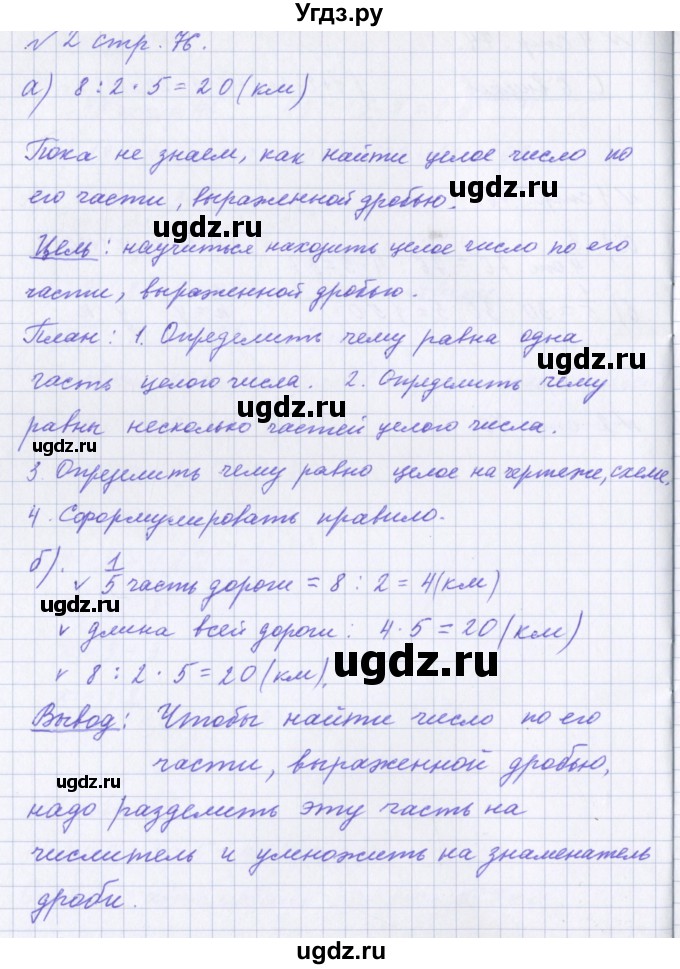 Угдз.ру
№ 2 стр. 76.
а) 8 : 2 · 5 = 20 (км)
Пока не знаем, как найти целое число по
его части, выраженной дробью.
ugdz.ru
ugdz.ru
Цель: научиться находить целое число по его
части, выраженной дробью.
План: 1. Определить чему равна одна
ugdz.ru
часть целого числа. 2. Определить чему
ugdz.ru
равны несколько частей целого числа.
ugdz.ru
3. Определить чему равно целое на чертеже, схеме.
4. Сформулировать правило.
б). 1/5 часть дороги = 8 : 2 = 4 (км)
ugdz.ru
v длина всей дороги: 4 · 5 = 20 (км)
ugdz.ru
v 8 : 2 · 5 = 20 (км).
Вывод: Чтобы найти число по его
ugdz.ru
части, выраженной дробью,
надо разделить эту часть на
ugdz.ru
числитель и умножить на знаменатель
ugdz.ru
дроби.
ugdz.ru